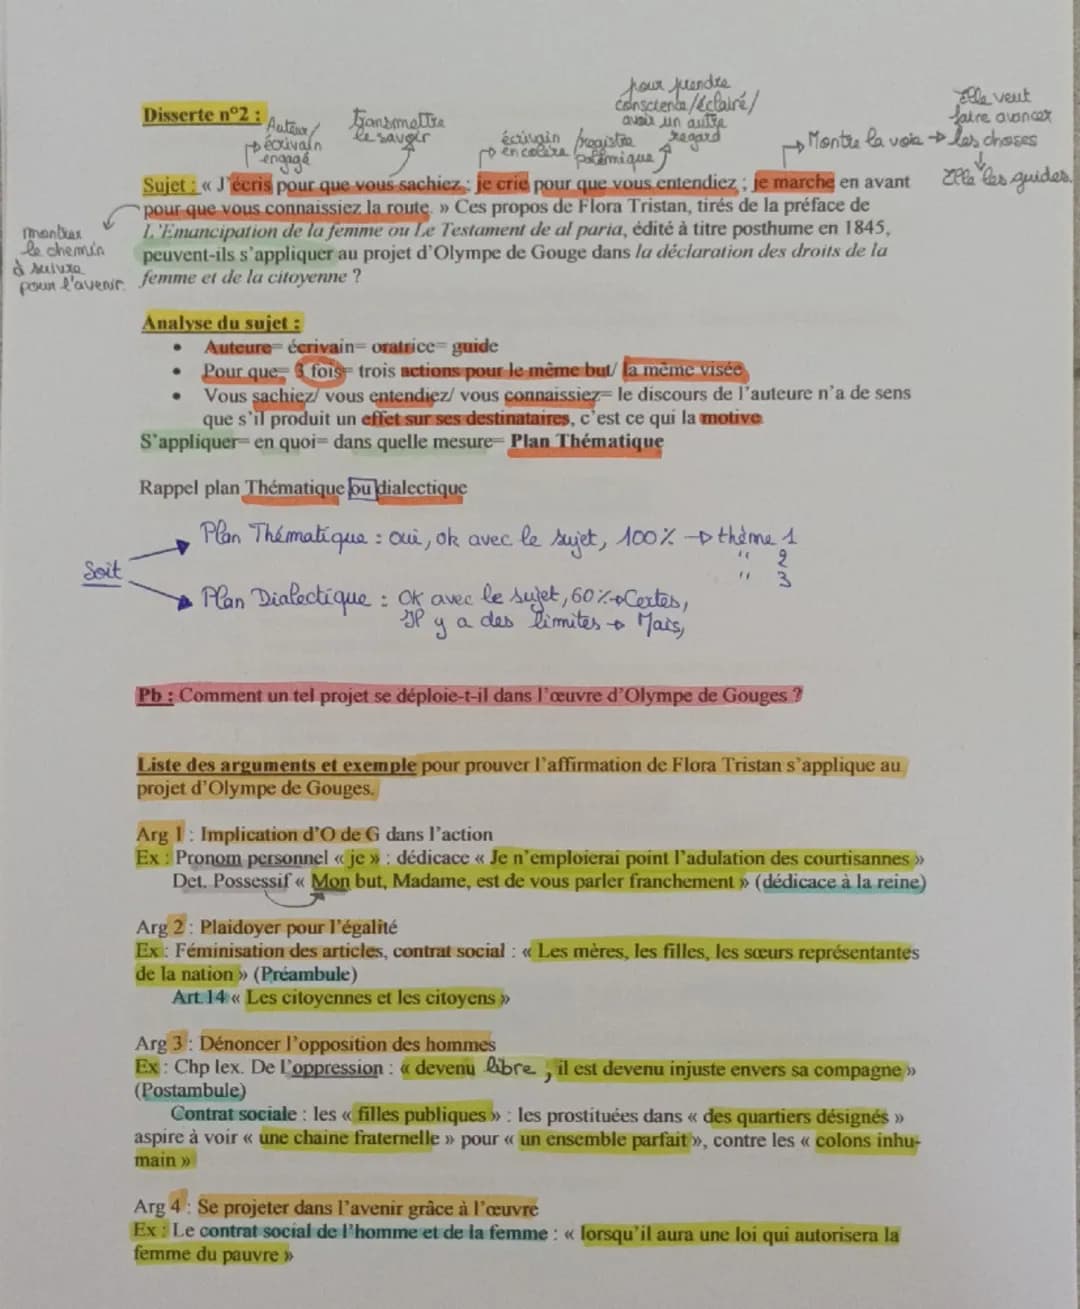 Disserte n°2 :
Auteur/
écrivain
engagé
transmettre
le savoir
écrivain
en colère
/registre
polémique
pour prendre
conscience/éclairé/
avoir un autre
regard
Montre la voie
Elle veut
faire avancer
les choses
Elle les guides.
Sujet : « J'écris pour que vous sachiez ; je crie pour que vous entendiez ; je marche en avant
pour que vous connaissiez la route. » Ces propos de Flora Tristan, tirés de la préface de
L'Emancipation de la femme ou Le Testament de al paria, édité à titre posthume en 1845,
peuvent-ils s'appliquer au projet d'Olympe de Gouge dans la déclaration des droits de la
femme et de la citoyenne ?
montrer
le chemin
à suivre
pour l'avenir.
Analyse du sujet :
• Auteure= écrivain= oratrice= guide
• Pour que= 3 fois= trois actions pour le même but/ la même visée
• Vous sachiez/ vous entendiez/ vous connaissiez= le discours de l'auteure n'a de sens
que s'il produit un effet sur ses destinataires, c'est ce qui la motive
S'appliquer= en quoi= dans quelle mesure= Plan Thématique
Rappel plan Thématique ou dialectique
Soit
Plan Thématique : oui, ok avec le sujet, 100% → thème 1
" 2
" 3
Plan Dialectique : OK avec le sujet, 60% → Certes,
Il y a des limites → Mais,
Pb : Comment un tel projet se déploie-t-il dans l'œuvre d'Olympe de Gouges ?
Liste des arguments et exemple pour prouver l'affirmation de Flora Tristan s'applique au
projet d'Olympe de Gouges.
Arg 1 : Implication d'O de G dans l'action
Ex : Pronom personnel « je » : dédicace « Je n'emploierai point l'adulation des courtisannes »
Det. Possessif « Mon but, Madame, est de vous parler franchement » (dédicace à la reine)
Arg 2 : Plaidoyer pour l'égalité
Ex : Féminisation des articles, contrat social : « Les mères, les filles, les sœurs représentantes
de la nation » (Préambule)
Art.14 « Les citoyennes et les citoyens »
Arg 3 : Dénoncer l'opposition des hommes
Ex : Chp lex. De l'oppression : « devenu libre , il est devenu injuste envers sa compagne »
(Postambule)
Contrat sociale : les « filles publiques » : les prostituées dans « des quartiers désignés »
aspire à voir « une chaine fraternelle » pour « un ensemble parfait », contre les « colons inhu-
main »
Arg 4 : Se projeter dans l'avenir grâce à l'œuvre
Ex : Le contrat social de l'homme et de la femme : « lorsqu'il aura une loi qui autorisera la
femme du pauvre »